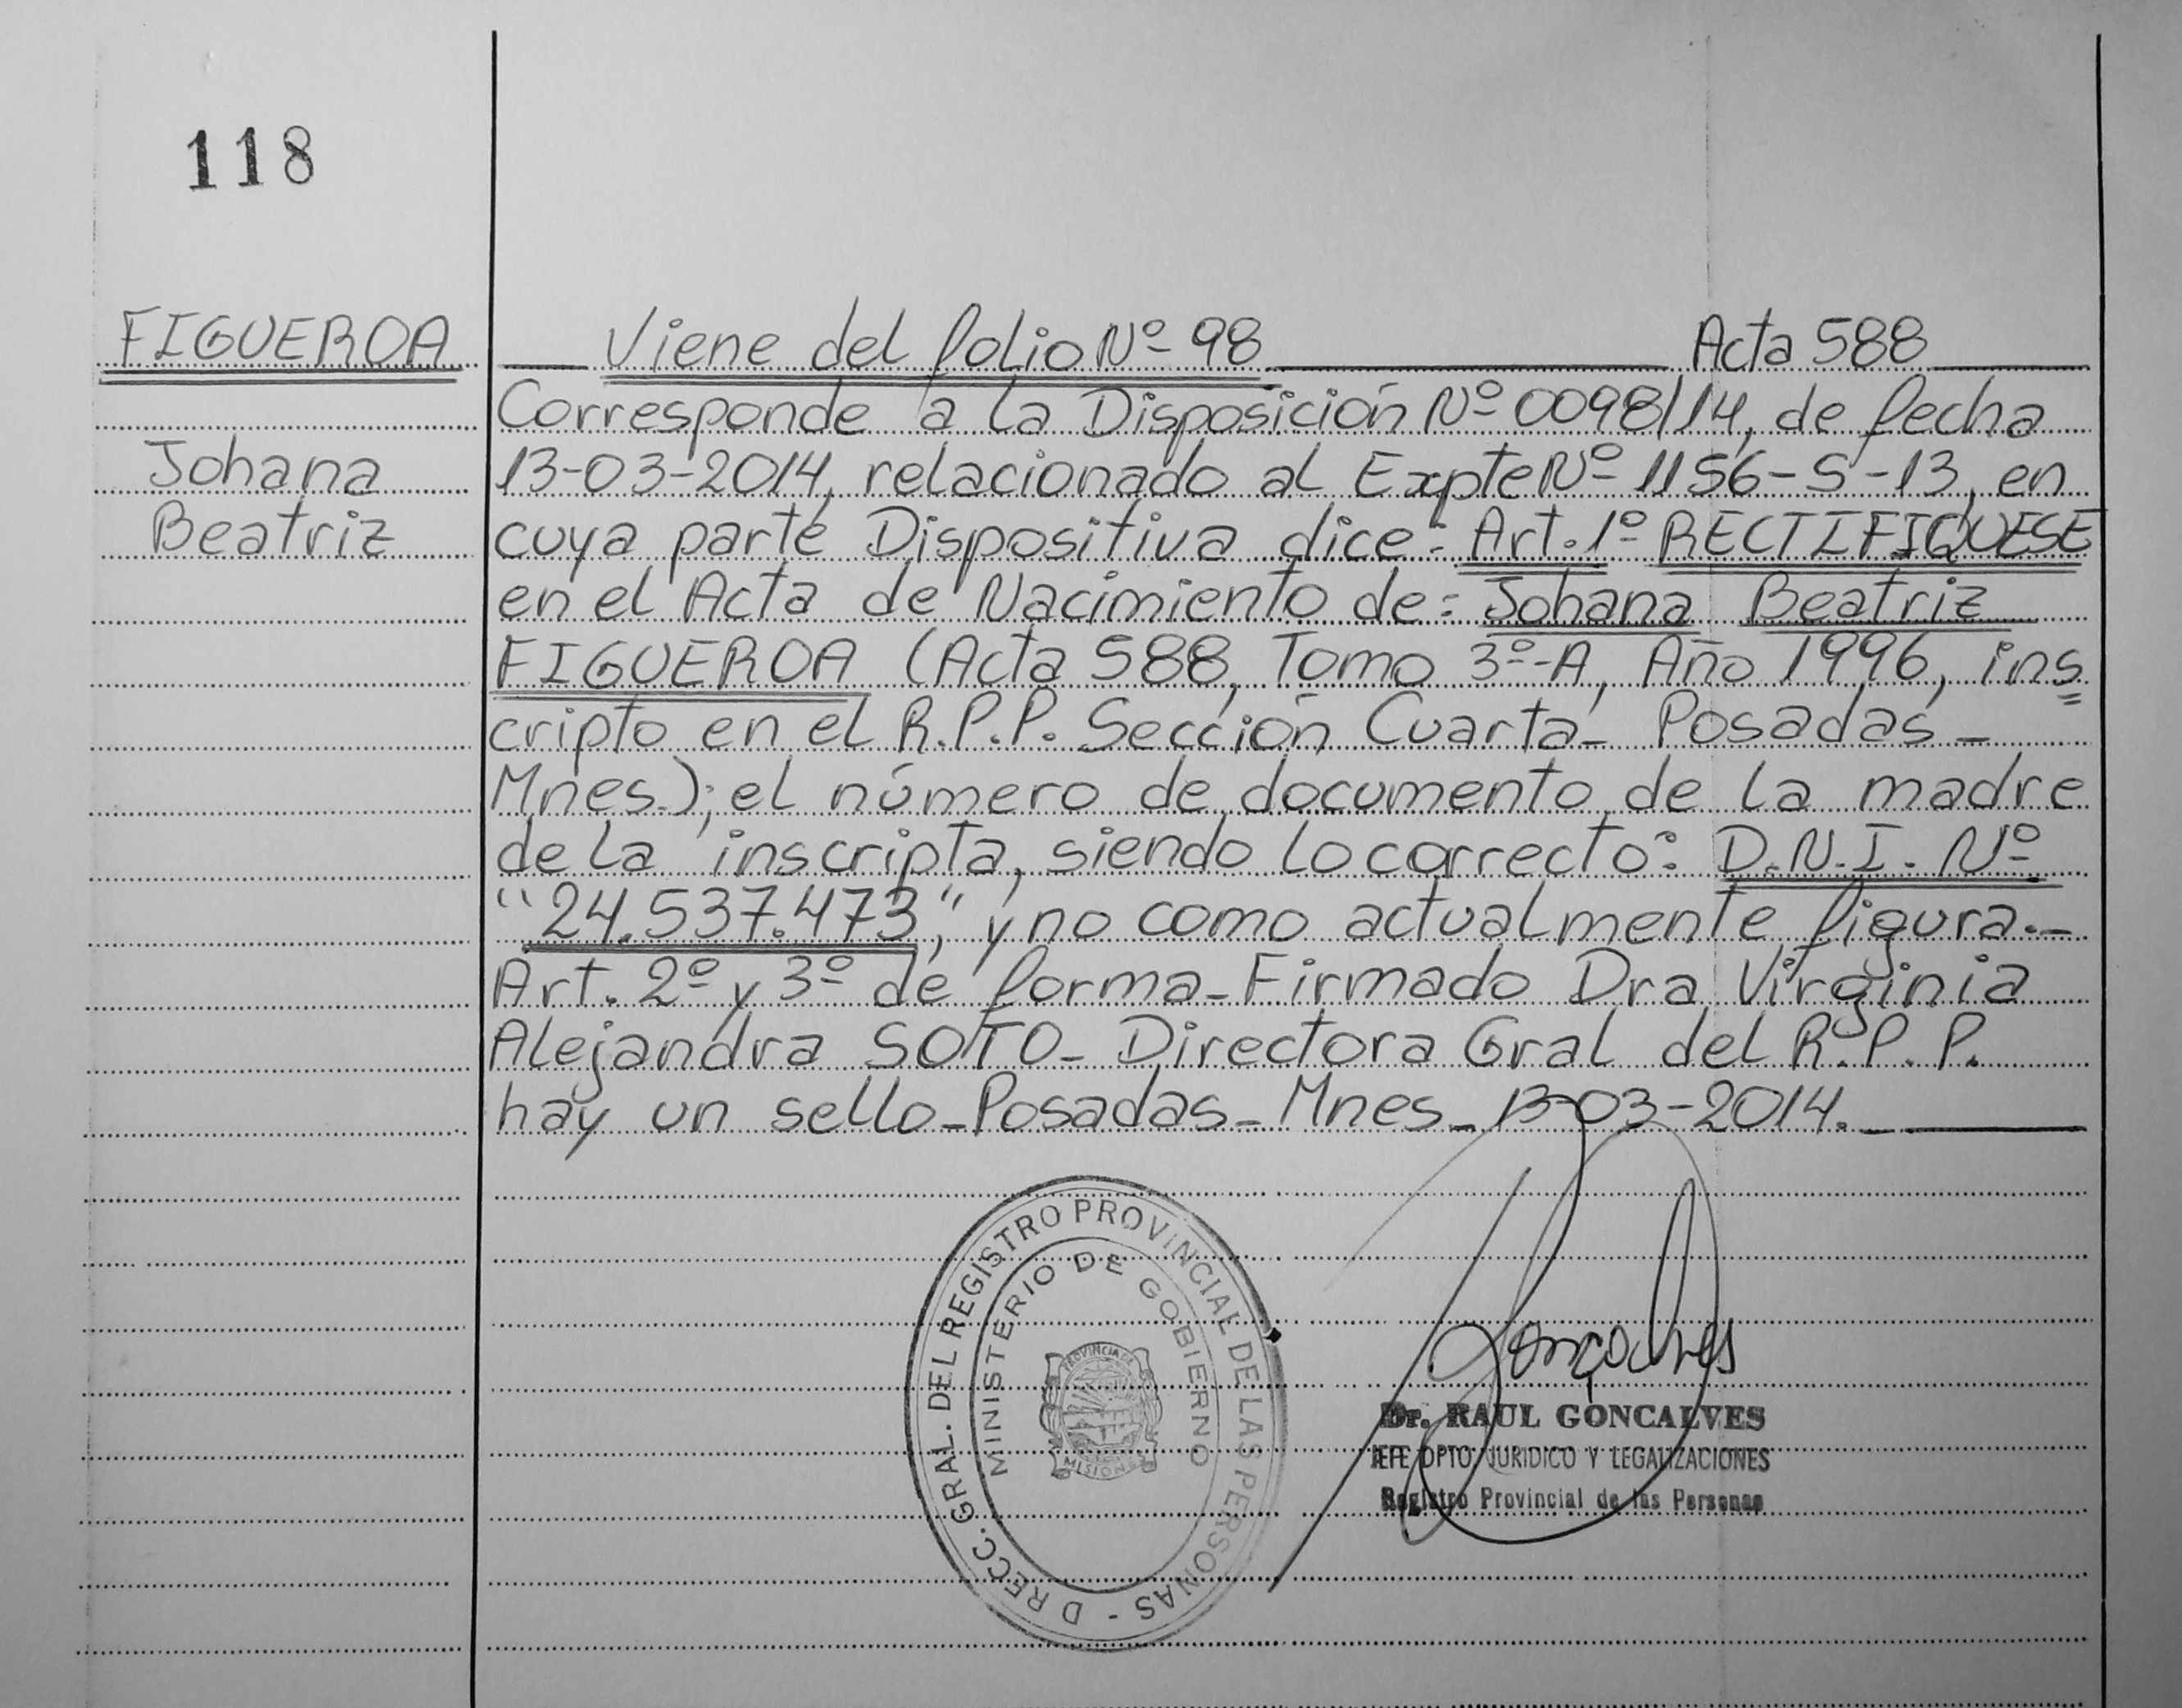 118
FIGUEROA
Johana
Beatriz
Viene del folio Nº 98 Acta 588
Corresponde a la Disposición Nº 0098/14, de fecha
13-03-2014, relacionado al Expte Nº 1156-S-13, en
cuya parte Dispositiva dice: Art. 1º RECTIFIQUESE
en el Acta de Nacimiento de: Johana Beatriz
FIGUEROA (Acta 588, Tomo 3º-A, Año 1996, ins
cripto en el R.P.P. Sección Cuarta- Posadas-
Mnes.); el número de documento de la madre
de la inscripta, siendo lo correcto: D.N.I. Nº
"24.537.473," y no como actualmente figura.-
Art. 2º y 3º de forma-Firmado Dra Virginia
Alejandra SOTO- Directora Gral del R.P.P.
hay un sello-Posadas-Mnes-13-03-2014.-
DRECC. GRAL. DEL REGISTRO PROVINCIAL DE LAS PERSONAS -
MINISTERIO DE GOBIERNO
PROVINCIA DE
MISIONES
Gonçalves
Dr. RAUL GONCALVES
JEFE DPTO JURIDICO Y LEGALIZACIONES
Registro Provincial de las Personas